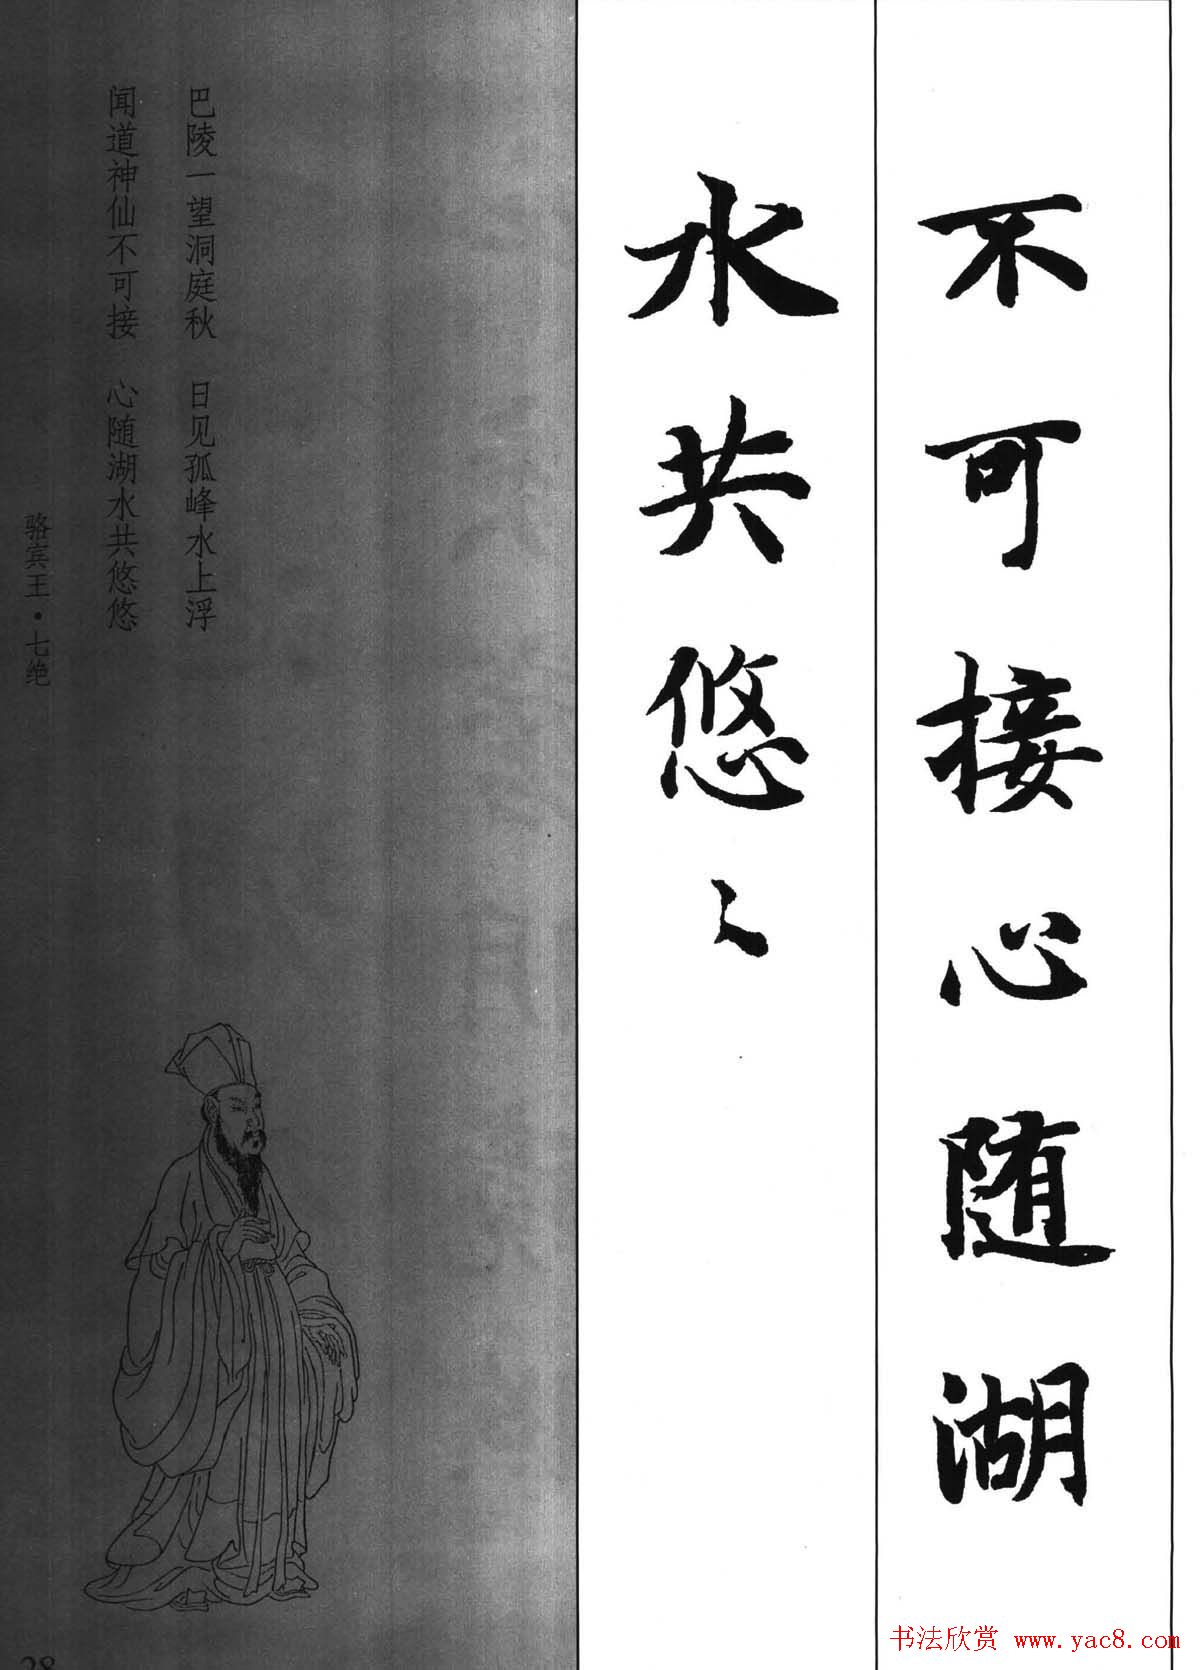 不可接心随湖
水共悠〻
巴陵一望洞庭秋 日见孤峰水上浮
闻道神仙不可接 心随湖水共悠悠
骆宾王·七绝
28
书法欣赏 www.yac8.com